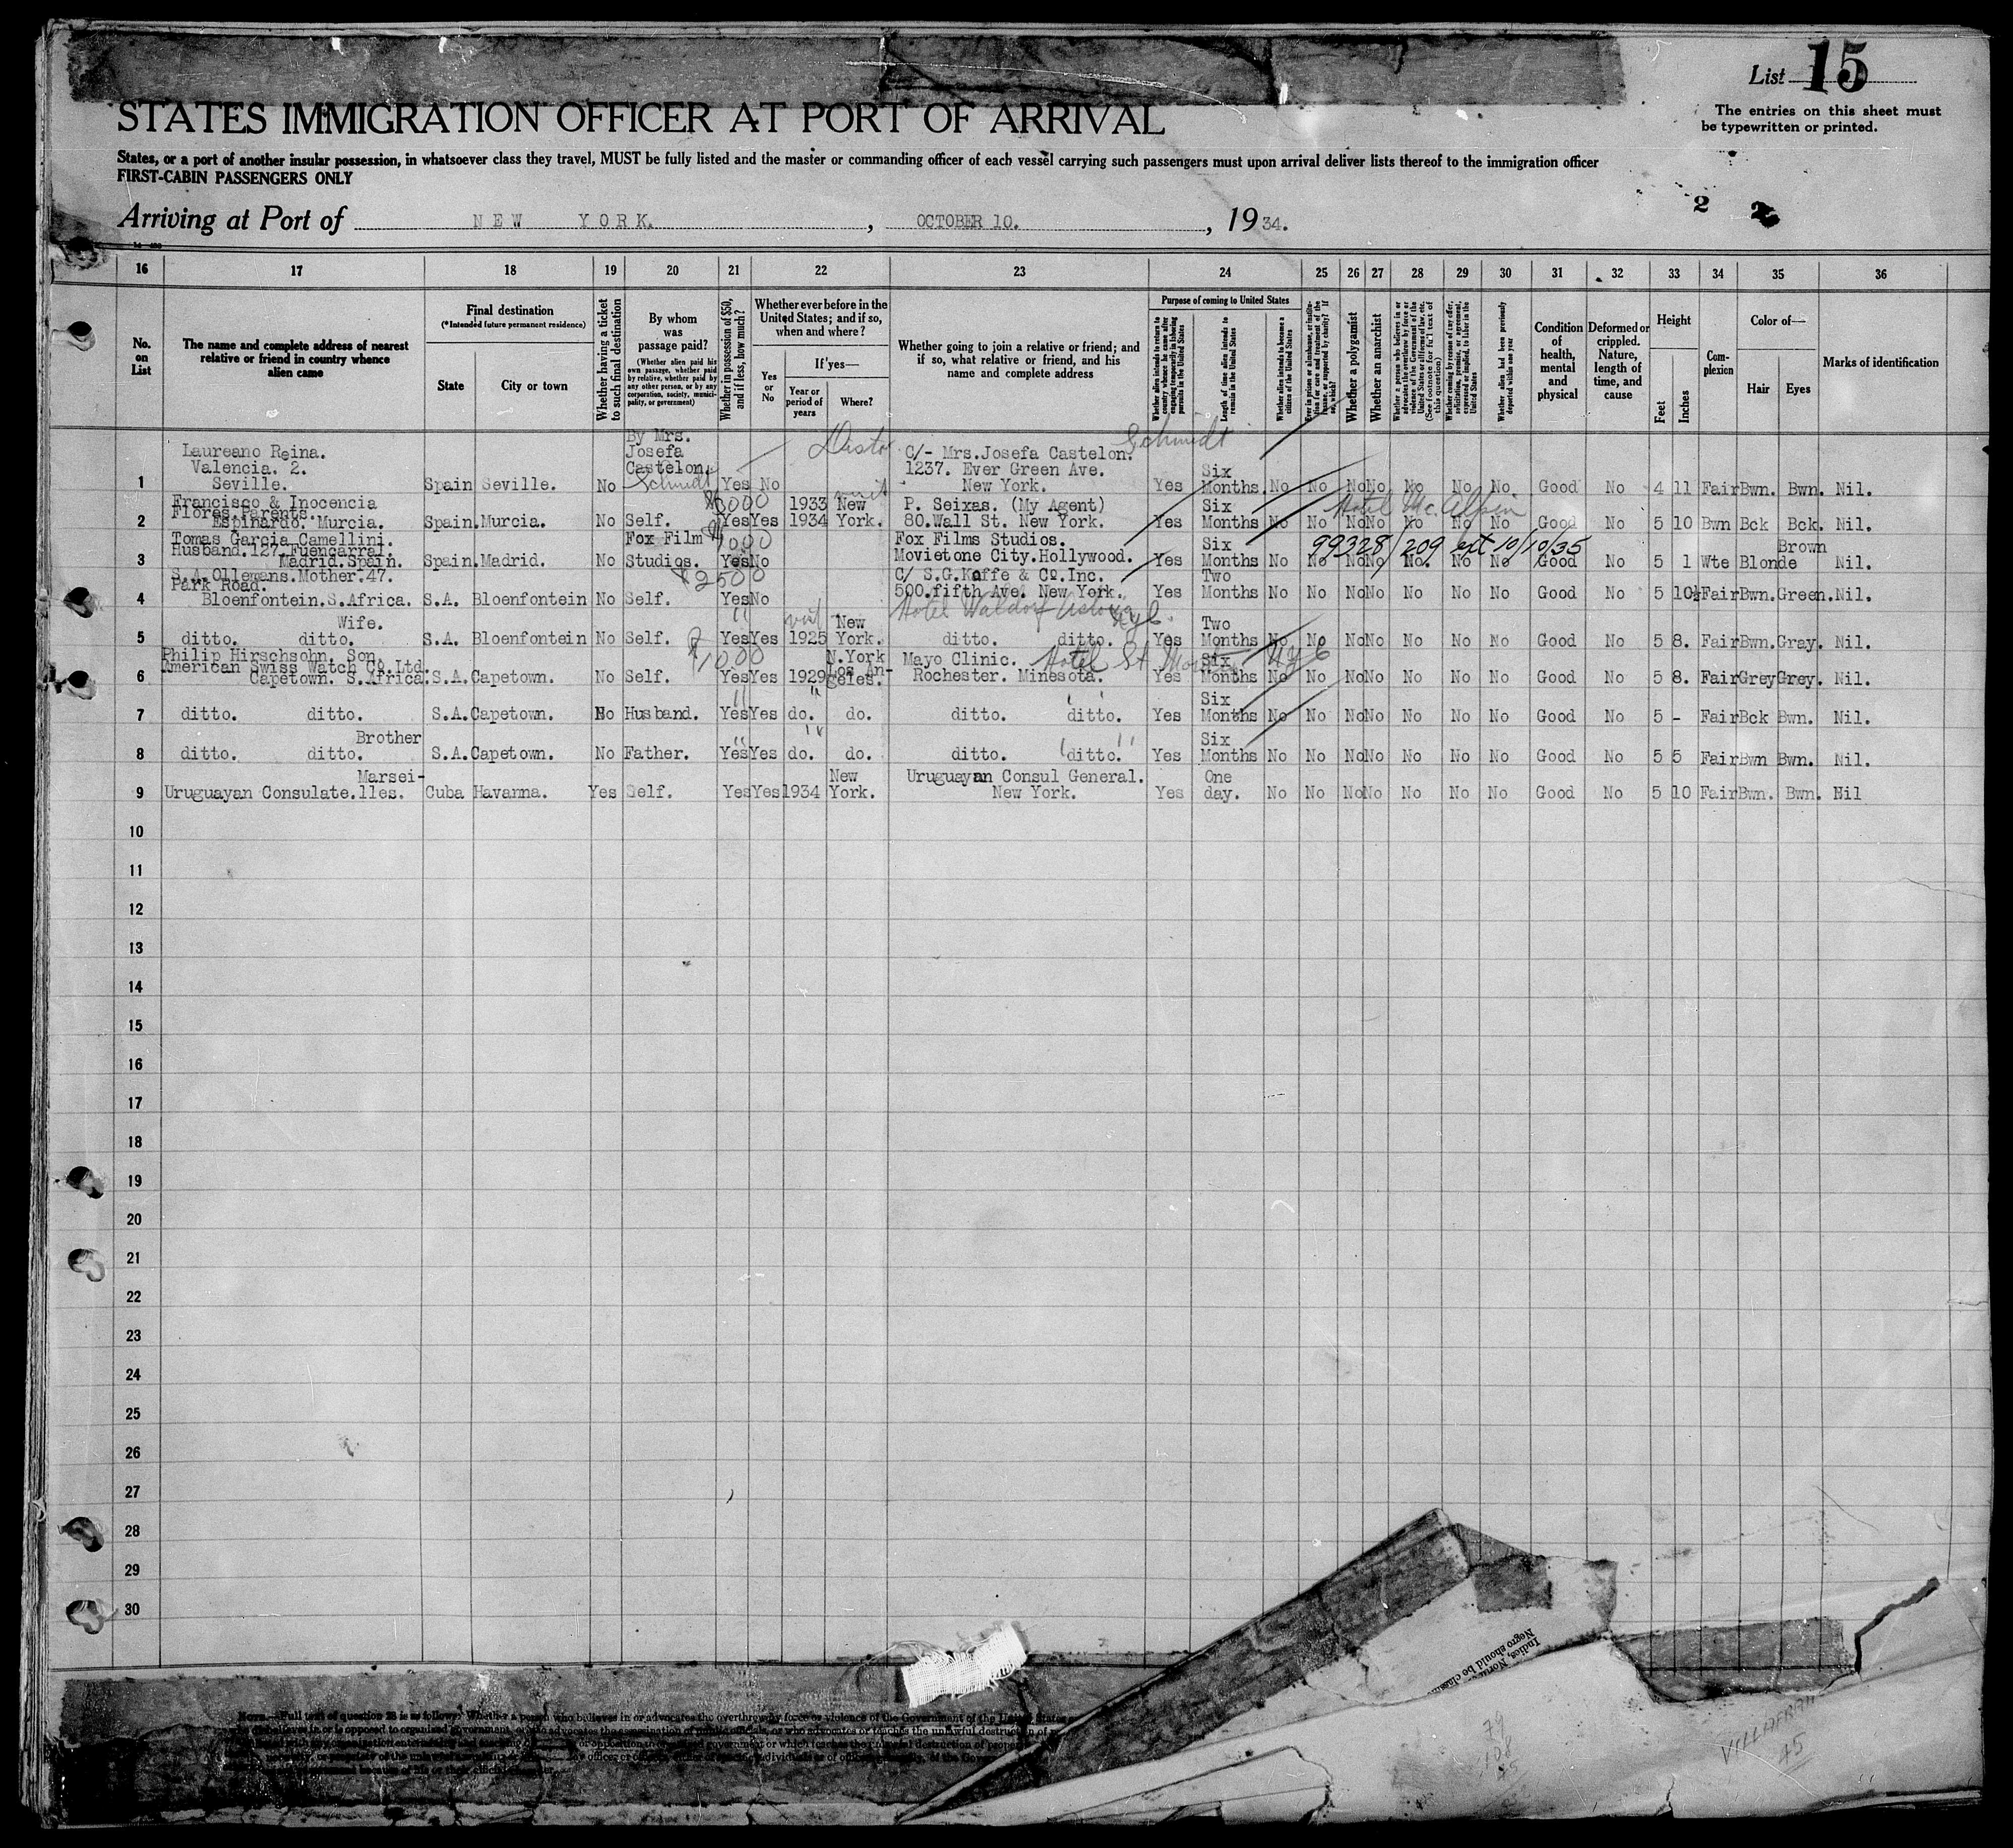 List 15
The entries on this sheet must
be typewritten or printed.
STATES IMMIGRATION OFFICER AT PORT OF ARRIVAL
States, or a port of another insular possession, in whatsoever class they travel, MUST be fully listed and the master or commanding officer of each vessel carrying such passengers must upon arrival deliver lists thereof to the immigration officer
FIRST-CABIN PASSENGERS ONLY
2 2
Arriving at Port of NEW YORK. , OCTOBER 10. , 1934.
16 17 18 19 20 21 22 23 24 25 26 27 28 29 30 31 32 33 34 35 36
No. on List
The name and complete address of nearest relative or friend in country whence alien came
Final destination
(*Intended future permanent residence)
State
City or town
Whether having a ticket to such final destination
By whom was passage paid?
(Whether alien paid his own passage, whether paid by relative, whether paid by any other person, or by any corporation, society, municipality, or government)
Whether in possession of $50, and if less, how much?
Whether ever before in the United States; and if so, when and where?
Yes or No
If yes—
Year or period of years
Where?
Whether going to join a relative or friend; and if so, what relative or friend, and his name and complete address
Purpose of coming to United States
Whether alien intends to return to country whence he came after engaging temporarily in laboring pursuits in the United States
Length of time alien intends to remain in the United States
Whether alien intends to become a citizen of the United States
Whether a polygamist
Whether an anarchist
Whether alien had been previously deported within one year
Condition of health, mental and physical
Deformed or crippled. Nature, length of time, and cause
Height
Feet
Inches
Complexion
Color of—
Hair
Eyes
Marks of identification
Laureano Reina. By Mrs. Schmidt
Valencia. 2. Josefa C/- Mrs.Josefa Castelon.
Castelon. 1237. Ever Green Ave. Six
1 Seville. Spain Seville. No Schmidt Yes No New York. Yes Months. No No No No No No No Good No 4 11 Fair Bwn. Bwn. Nil.
Francisco & Inocencia 1933 New P. Seixas. (My Agent) Six Hotel Mc.Alpin
Flores.Parents.
2 Espinardo. Murcia. Spain. Murcia. No Self. Yes Yes 1934 York. 80.Wall St. New York. Yes Months No No No No No No No Good No 5 10 Bwn Bck Bck. Nil.
Tomas Garcia Camellini. Fox Film $1000 Fox Films Studios. Six 99328/209 ext 10/10/35
Husband.127.Fuencarral. Brown
3 Madrid.Spain. Spain. Madrid. No Studios. Yes No Movietone City.Hollywood. Yes Months No No No No No No No Good No 5 1 Wte Blonde Nil.
S.A.Ollemans.Mother.47. $2500 C/ S.G.Kaffe & Co.Inc. Two
Park Road.
4 Bloenfontein.S.Africa. S.A. Bloenfontein No Self. Yes No 500.fifth Ave. New York. Yes Months No No No No No No No Good No 5 10½ Fair Bwn. Green. Nil.
Wife. " visit New Hotel Waldorf Astoria NYC. Two
5 ditto. ditto. S.A. Bloenfontein No Self. Yes Yes 1925 York. ditto. ditto. Yes Months No No No No No No No Good No 5 8. Fair Bwn. Gray. Nil.
Philip Hirschsohn. Son $1000 N.York Mayo Clinic. Hotel St Moritz NYC Six
American Swiss Watch Co.Ltd. Los An-
6 Capetown. S.Africa. S.A. Capetown. No Self. Yes Yes 1929 geles. Rochester. Minesota. Yes Months No No No No No No No Good No 5 8. Fair Grey Grey. Nil.
" " " Six
7 ditto. ditto. S.A. Capetown. No Husband. Yes Yes do. do. ditto. ditto. Yes Months No No No No No No No Good No 5 - Fair Bck Bwn. Nil.
Brother " " " Six
8 ditto. ditto. S.A. Capetown. No Father. Yes Yes do. do. ditto. ditto. Yes Months No No No No No No No Good No 5 5 Fair Bwn Bwn. Nil.
Marsei- New Uruguayan Consul General. One
9 Uruguayan Consulate.lles. Cuba Havanna. Yes Self. Yes Yes 1934 York. New York. Yes day. No No No No No No No Good No 5 10 Fair Bwn. Bwn. Nil
10
11
12
13
14
15
16
17
18
19
20
21
22
23
24
25
26
27
28
29
30
Negro should be
NOTE.—Full text of question 28 is as follows: Whether a person who believes in or advocates the overthrow by force or violence of the Government of the United States
79
108
45